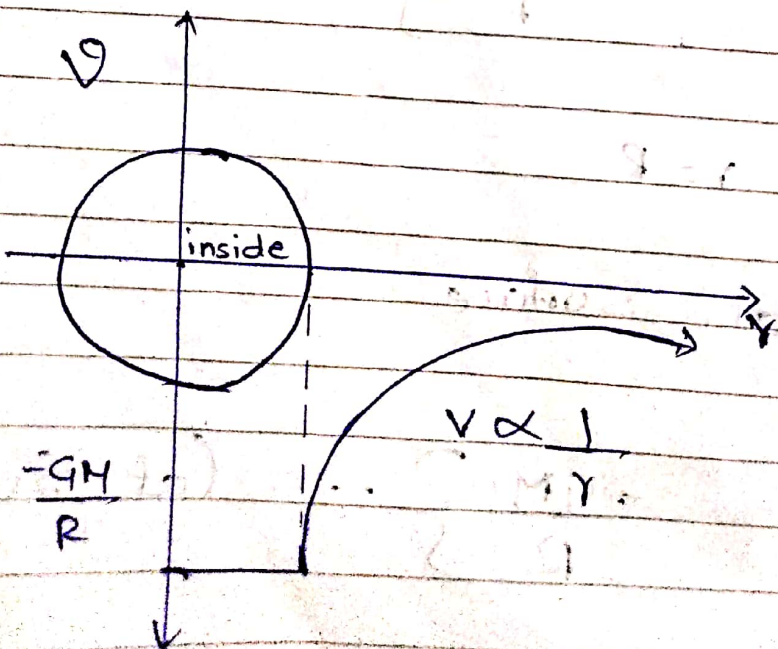 V
inside
r
V ∝ 1/r
-GM/R